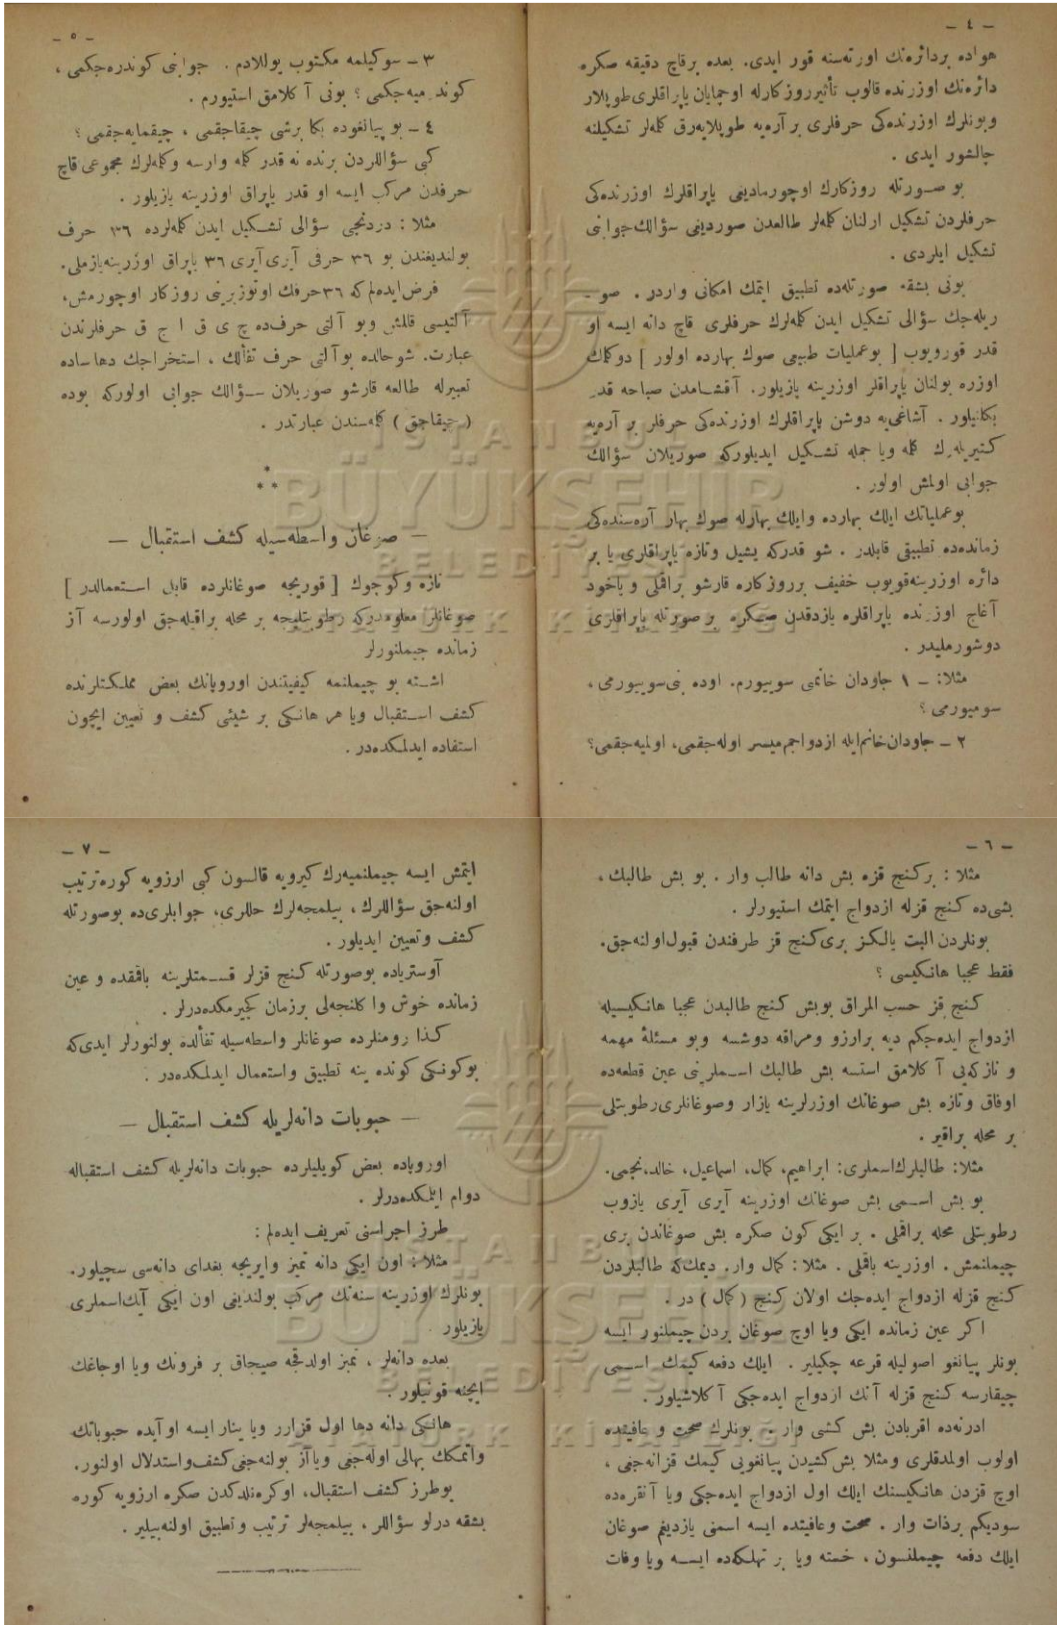 — ٤ —
هواده بردائره‌نك اورته‌سنه قور ایدی. بعده برقاچ دقیقه صكره
دائره‌نك اوزرنده قالوب تأثیرروزكارله اوچمایان یاپراقلری طوپلار
وبونلرك اوزرنده‌كی حرفلری بر آره‌یه طوپلایه‌رق كله‌لر تشكیلنه
چالشور ایدی .
بو صورتله روزكارك اوچورمادیغی یاپراقلرك اوزرنده‌كی
حرفلردن تشكیل اولنان كله‌لر طالعدن صوردیغی سؤالك جوابی
تشكیل ایلردی .
بونی بشقه صورتله‌ده تطبیق ایتمك امكانی واردر . صو
ریله‌جك سؤالی تشكیل ایدن كله‌لرك حرفلری قاچ دانه ایسه او
قدر قوروپوب [ بوعملیات طبیعی صوك بهارده اولور ] دوكلك
اوزره بولنان یاپراقلر اوزرینه یازیلور. آقشامدن صباحه قدر
بكلنیلور . آشاغی‌یه دوشن یاپراقلرك اوزرنده‌كی حرفلر بر آره‌یه
كتیریله‌رك كله ویا جمله تشكیل ایدیلوركه صوریلان سؤالك
جوابی اولمش اولور .
بوعملیاتك ایلك بهارده وایلك بهارله صوك بهار آره‌سنده‌كی
زمانده‌ده تطبیقی قابلدر . شو قدركه یشیل وتازه یاپراقلری یا بر
دائره اوزرینه‌قویوب خفیف برروزكاره قارشو براقملی و یاخود
آغاج اوزرنده یاپراقلره یازدقدن صكره بر صورتله یاپراقلری
دوشورملیدر .
مثلا: — ١ جاودان خانمی سویورم. اوده بنی‌سویورمی ،
سومیورمی ؟
٢ — جاودان‌خانم‌ایله ازدواجم‌میسر اوله‌جقمی، اولمیه‌جقمی؟
— ٥ —
٣ — سوكیلمه مكتوب یوللادم . جوابنی كوندره‌جكمی ،
كوندرمیه‌جكمی ؟ بونی آ كلامق استیورم .
٤ — بو پیانغوده بكا برشی چیقاجقمی ، چیقمایه‌جقمی ؟
كبی سؤاللردن برنده نه قدر كله وارسه وكله‌لرك مجموعی قاچ
حرفدن مركب ایسه او قدر یاپراق اوزرینه یازیلور .
مثلا : دردنجی سؤالی تشكیل ایدن كله‌لرده ٣٦ حرف
بولندیغندن بو ٣٦ حرفی آیری آیری ٣٦ یاپراق اوزرینه‌یازملی.
فرض ایده‌لم‌كه ٣٦حرفك اوتوزبرینی روزكار اوچورمش،
آلتیسی قالمش وبو آلتی حرف‌ده چ ی ق ا ج ق حرفلرندن
عبارت. شوحالده بوآلتی حرف تفألك ، استخراجك دهاساده
تعبیرله طالعه قارشو صوریلان سؤالك جوابی اولوركه بوده
( چیقاجق ) كله‌سندن عبارتدر .
*
* *
— صوغان واسطه‌سیله كشف استقبال —
تازه وكوچوك [ قوریجه صوغانلرده قابل استعمالدر ]
صوغانلر معلومدركه رطوبتلیجه بر محله براقیله‌جق اولورسه آز
زمانده چیملنورلر
اشته بو چیملنمه كیفیتندن اوروپانك بعض مملكتلرنده
كشف استقبال ویا هر هانكی بر شیئی كشف و تعیین ایچون
استفاده ایدلمكده‌در .
— ٦ —
مثلا : بركنج قزه بش دانه طالب وار . بو بش طالبك ،
بشی‌ده كنج قزله ازدواج ایتمك استیورلر .
بونلردن البت یالكز بری كنج قز طرفندن قبول‌اولنه‌جق.
فقط عجبا هانكیسی ؟
كنج قز حسب المراق بوبش كنج طالبدن عجبا هانكیسیله
ازدواج ایده‌جكم دیه برارزو ومراقه دوشسه وبو مسئلۀ مهمه
و نازكه‌یی آ كلامق استسه بش طالبك اسملرینی عین قطعه‌ده
اوفاق وتازه بش صوغانك اوزرلرینه یازار وصوغانلری‌رطوبتلی
بر محله براقیر .
مثلا: طالبلرك‌اسملری: ابراهیم، كمال، اسماعیل، خالد،نجمی.
بو بش اسمی بش صوغانك اوزرینه آیری آیری یازوب
رطوبتلی محله براقملی . بر ایكی كون صكره بش صوغاندن بری
چیملنمش . اوزرینه باقملی . مثلا : كمال وار. دیمك‌كه طالبلردن
كنج قزله ازدواج ایده‌جك اولان كنج ( كمال ) در .
اكر عین زمانده ایكی ویا اوچ صوغان بردن چیملنور ایسه
بونلر پیانغو اصولیله قرعه چكیلیر . ایلك دفعه كیمك اسمی
چیقارسه كنج قزله آنك ازدواج ایده‌جكی آ كلاشیلور .
ادرنه‌ده اقربادن بش كشی وار . بونلرك صحت و عافیتده
اولوب اولمدقلری ومثلا بش كشیدن پیانغویی كیمك قزانه‌جغی ،
اوچ قزدن هانكیسنك ایلك اول ازدواج ایده‌جكی ویا آنقره‌ده
سودیكم برذات وار . صحت وعافیتده ایسه اسمنی یازدیغم صوغان
ایلك دفعه چیملنسون ، خسته ویا بر تهلكه‌ده ایسه ویا وفات
— ٧ —
ایتمش ایسه چیملنمیه‌رك كیرویه قالسون كبی ارزویه كوره‌ترتیب
اولنه‌جق سؤاللرك ، بیلمجه‌لرك حللری، جوابلری‌ده بوصورتله
كشف وتعیین ایدیلور .
آوستریاده بوصورتله كنج قزلر قسمتلرینه باقمقده و عین
زمانده خوش وا كلنجه‌لی برزمان كچیرمكده‌درلر .
كذا رومنلرده صوغانلر واسطه‌سیله تفألده بولنورلر ایدی‌كه
بوكونكی كونده ینه تطبیق واستعمال ایدلمكده‌در .
— حبوبات دانه‌لریله كشف استقبال —
اوروپاده بعض كویلیلرده حبوبات دانه‌لریله كشف استقباله
دوام ایتمكده‌درلر .
طرز اجراسنی تعریف ایده‌لم :
مثلا : اون ایكی دانه تمیز وایریجه بغدای دانه‌سی سچیلور.
بونلرك اوزرینه سنه‌نك مركب بولندیغی اون ایكی آیك‌اسملری
یازیلور
بعده دانه‌لر ، تمیز اولدقجه صیجاق بر فرونك ویا اوجاغك
ایچنه قونیلور .
هانكی دانه دها اول قزارر ویا یانار ایسه اوآیده حبوباتك
واتمكك بهالی اوله‌جغی ویاآز بولنه‌جغی كشف‌واستدلال اولنور.
بوطرز كشف استقبال، اوكره‌نلدكدن صكره ارزویه كوره
بشقه درلو سؤاللر ، بیلمجه‌لر ترتیب وتطبیق اولنه‌بیلیر .
İSTANBUL
BÜYÜKŞEHİR
BELEDİYESİ
ATATÜRK KİTAPLIĞI